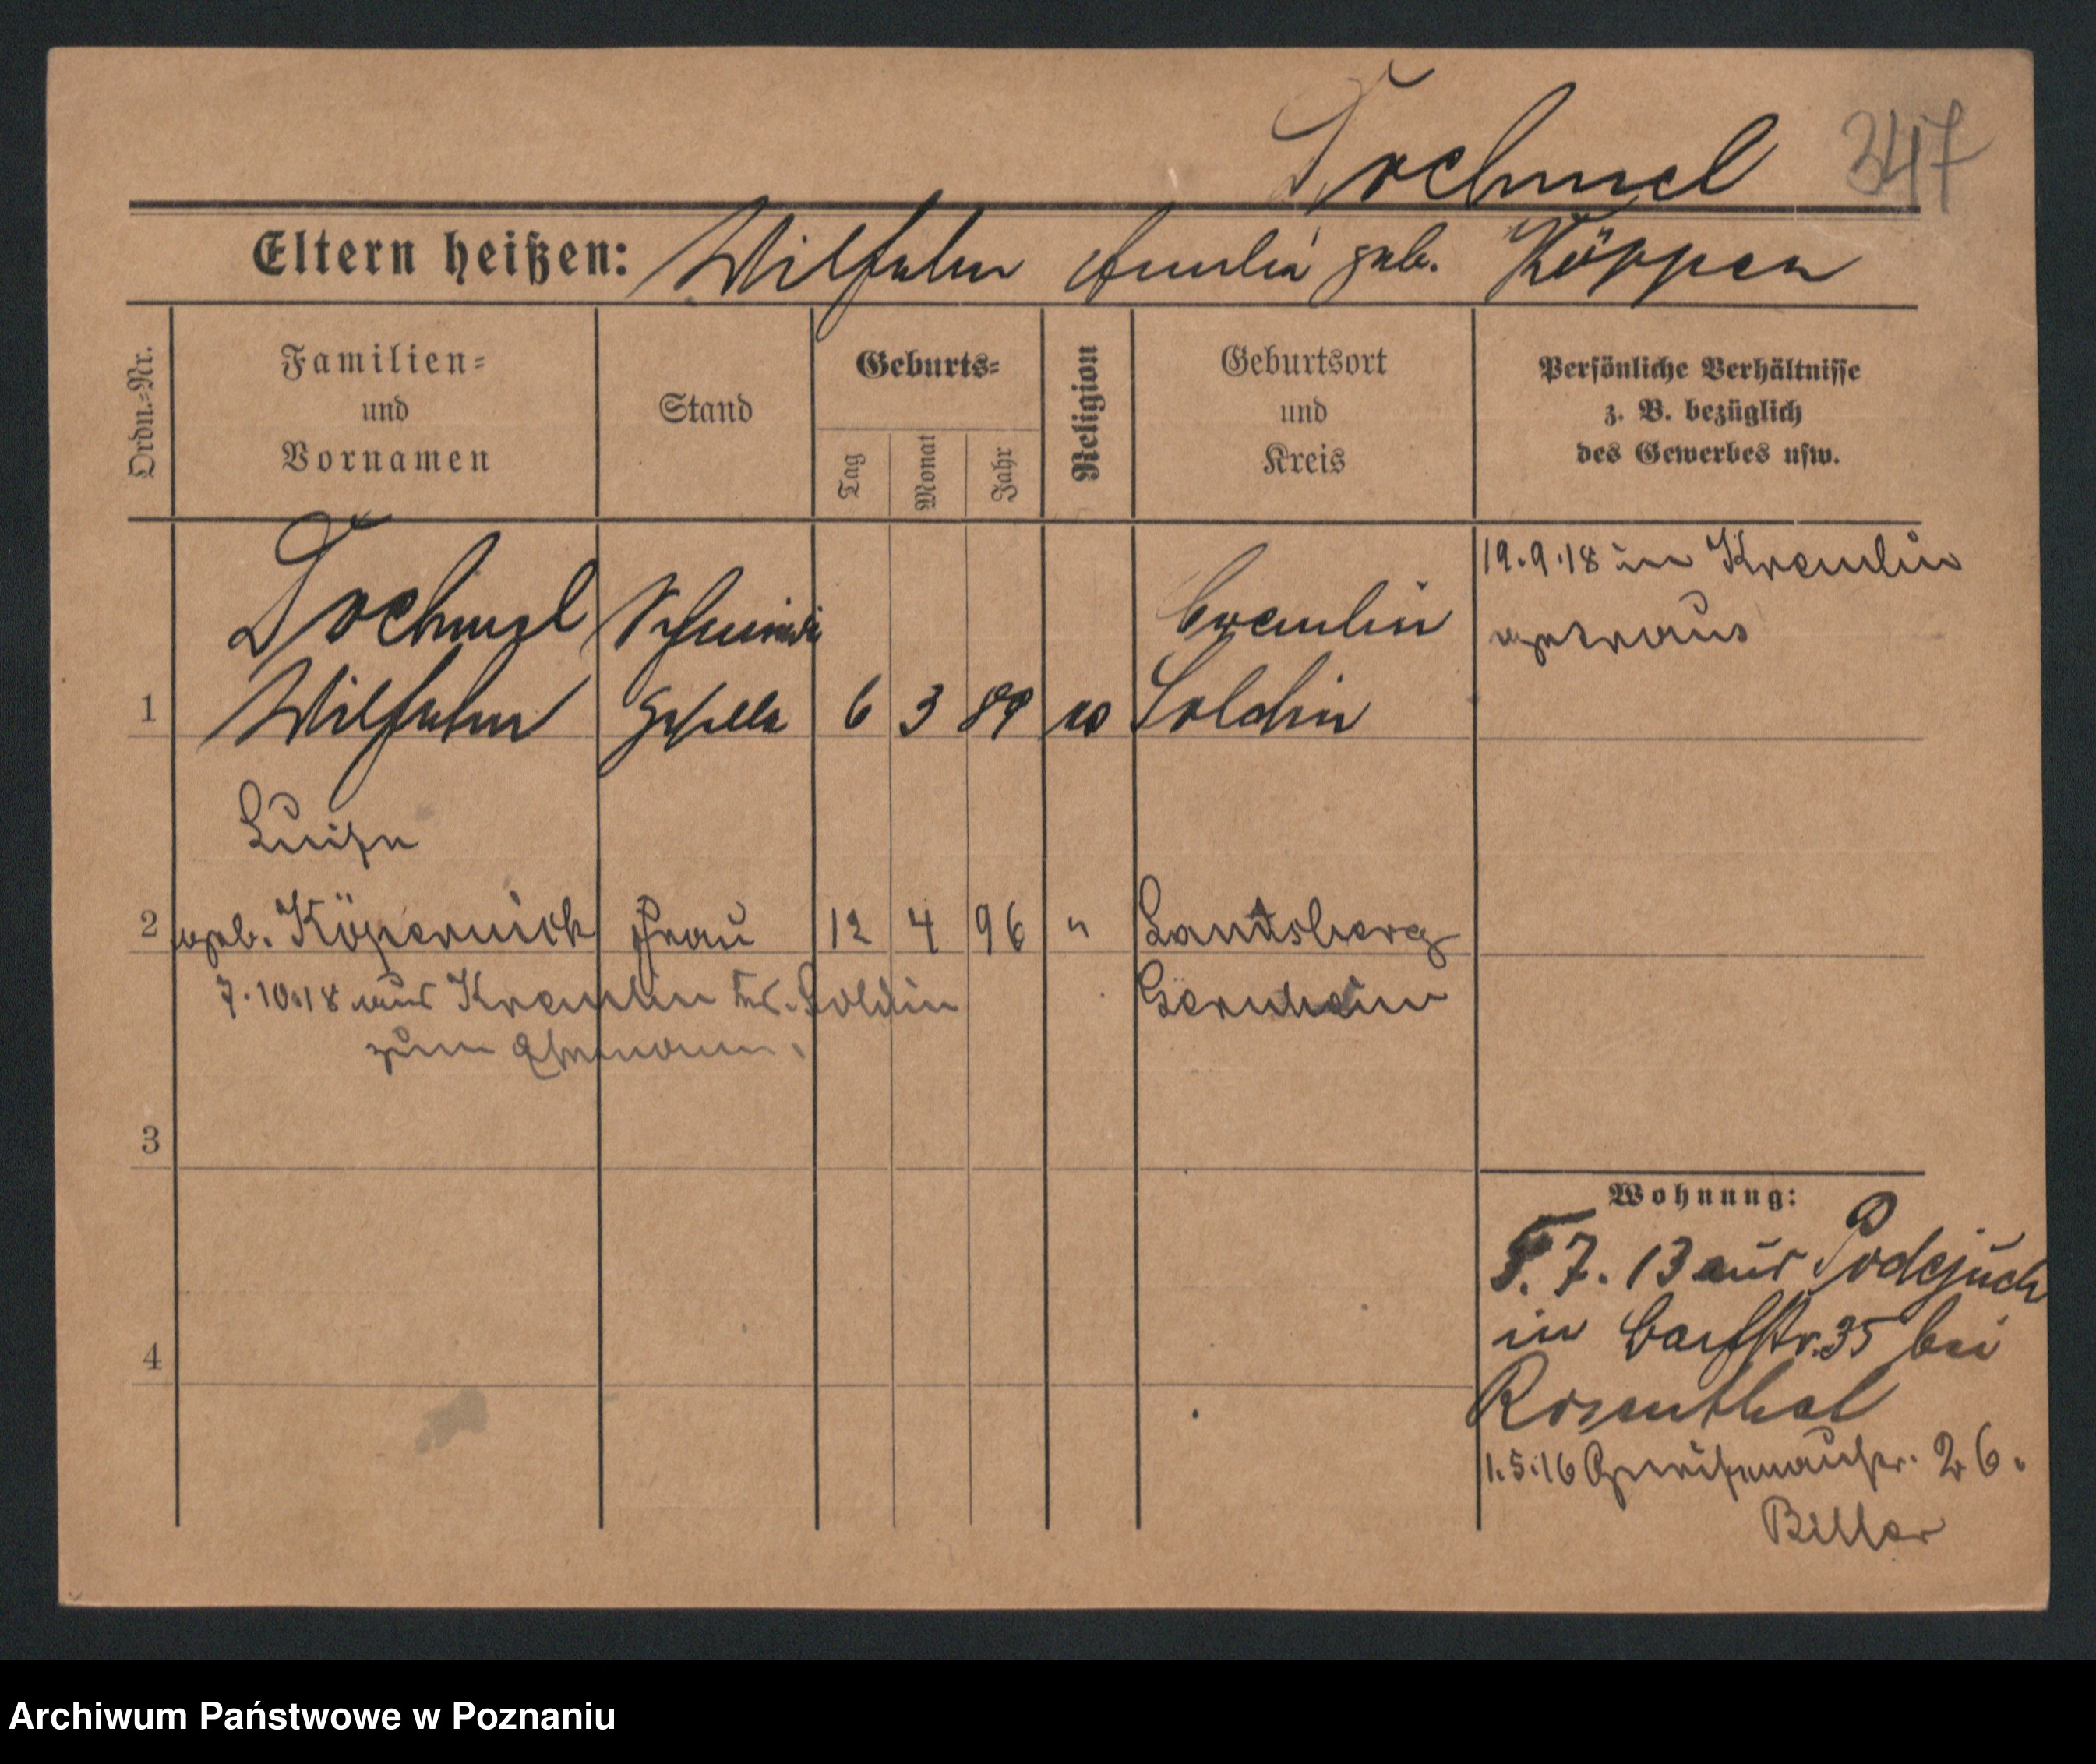 Dochmel 347
Eltern heißen: Wilhelm Amalie geb. Köppen
Ordn.=Nr.
Familien=
und
Vornamen
Stand
Geburts=
Tag
Monat
Jahr
Religion
Geburtsort
und
Kreis
Persönliche Verhältnisse
z. B. bezüglich
des Gewerbes usw.
19.9.18 in Kremlin
getraut
Dochmel Schmiede Cremlin
1 Wilhelm Geselle 6 3 89 ev Soldin
Luise
2 geb. Köpernick Frau 12 4 96 " Landsberg
7.10.18 aus Kremlin Kr. Soldin
zum Ehemann.
Gernheim
3
4
Wohnung:
7. 13 aus Podejuch
in 35 bei
Rosenthal
1.5.16 Gneisenaustr. 26.
Biller
Archiwum Państwowe w Poznaniu